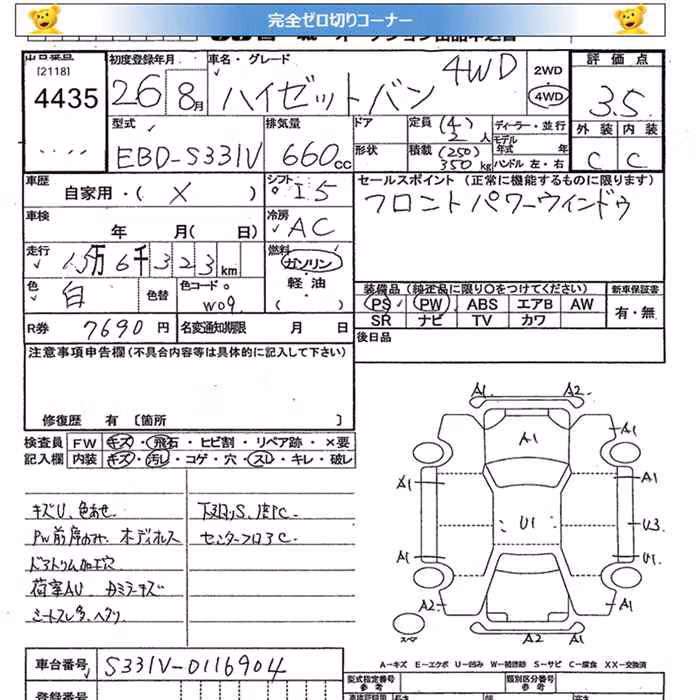 完全ゼロ切りコーナー
出品番号
[2118]
4435
初度登録年月
26 8月
車名・グレード
ハイゼットバン 4WD
2WD
4WD
評価点
3.5
外装 内装
C C
型式
EBD-S331V
排気量
660cc
ドア
形状
定員 (4) 2人
積載 (250) 350kg
ディーラー・並行
モデル年式 年
ハンドル 左・右
車歴
自家用・( X )
シフト
I5
セールスポイント (正常に機能するものに限ります)
フロントパワーウィンドウ
車検
年 月( 日)
冷房
AC
走行
15万6千323km
燃料
ガソリン・軽油
色
白
色替
色コード
W09
装備品 (純正品に限り○をつけてください)
新車保証書
PS PW ABS エアB AW
有・無
SR ナビ TV カワ
R券 7690円
名変通知期限 月 日
後日品
注意事項申告欄(不具合内容等は具体的に記入して下さい)
修復歴 有 〔箇所 〕
検査員記入欄
FW キズ・飛石・ヒビ割・リペア跡・×要
内装 キズ・汚レ・コゲ・穴・スレ・キレ・破レ
キズU、色あせ.
下廻りS、
センターフロアC
ドアトリム加工穴
荷室AU
A1 A2
A1
A1 A1
A1 A1
U1
U3
A1 U1
A2 A1
A2 A1
スペア
A-キズ E-エクボ U-凹み W-補修跡 S-サビ C-腐食 XX-交換済
車台番号 S331V-0116904
型式指定番号
参考
類別区分番号
参考
登録番号
長さ
高さ